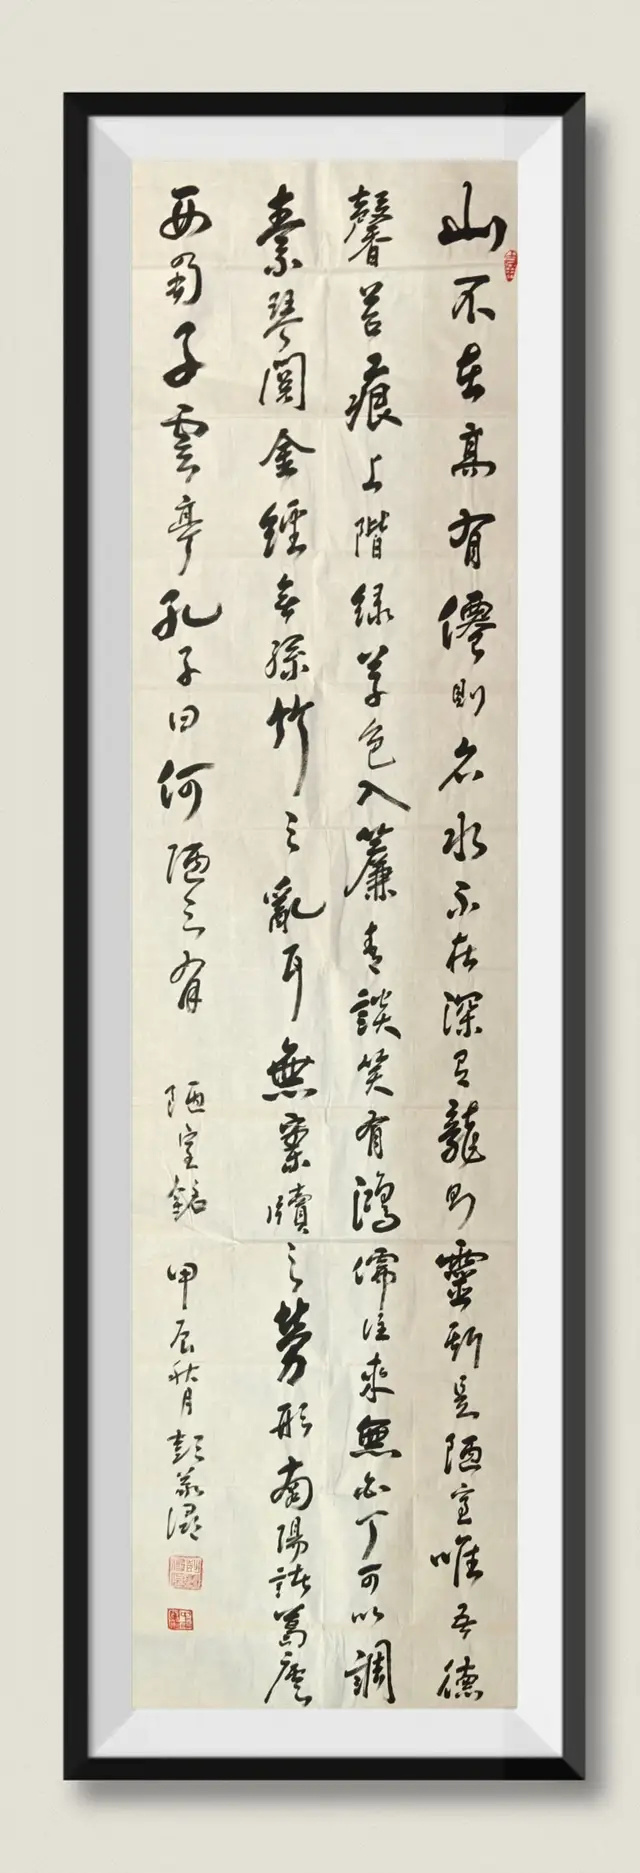 山不在高有僊則名水不在深有龍則靈斯是陋室唯吾德
馨苔痕上階緑草色入簾青談笑有鴻儒往來無白丁可以調
素琴閱金經無絲竹之亂耳無案牘之勞形南陽諸葛廬
西蜀子雲亭孔子曰何陋之有 陋室銘 甲辰秋月彭